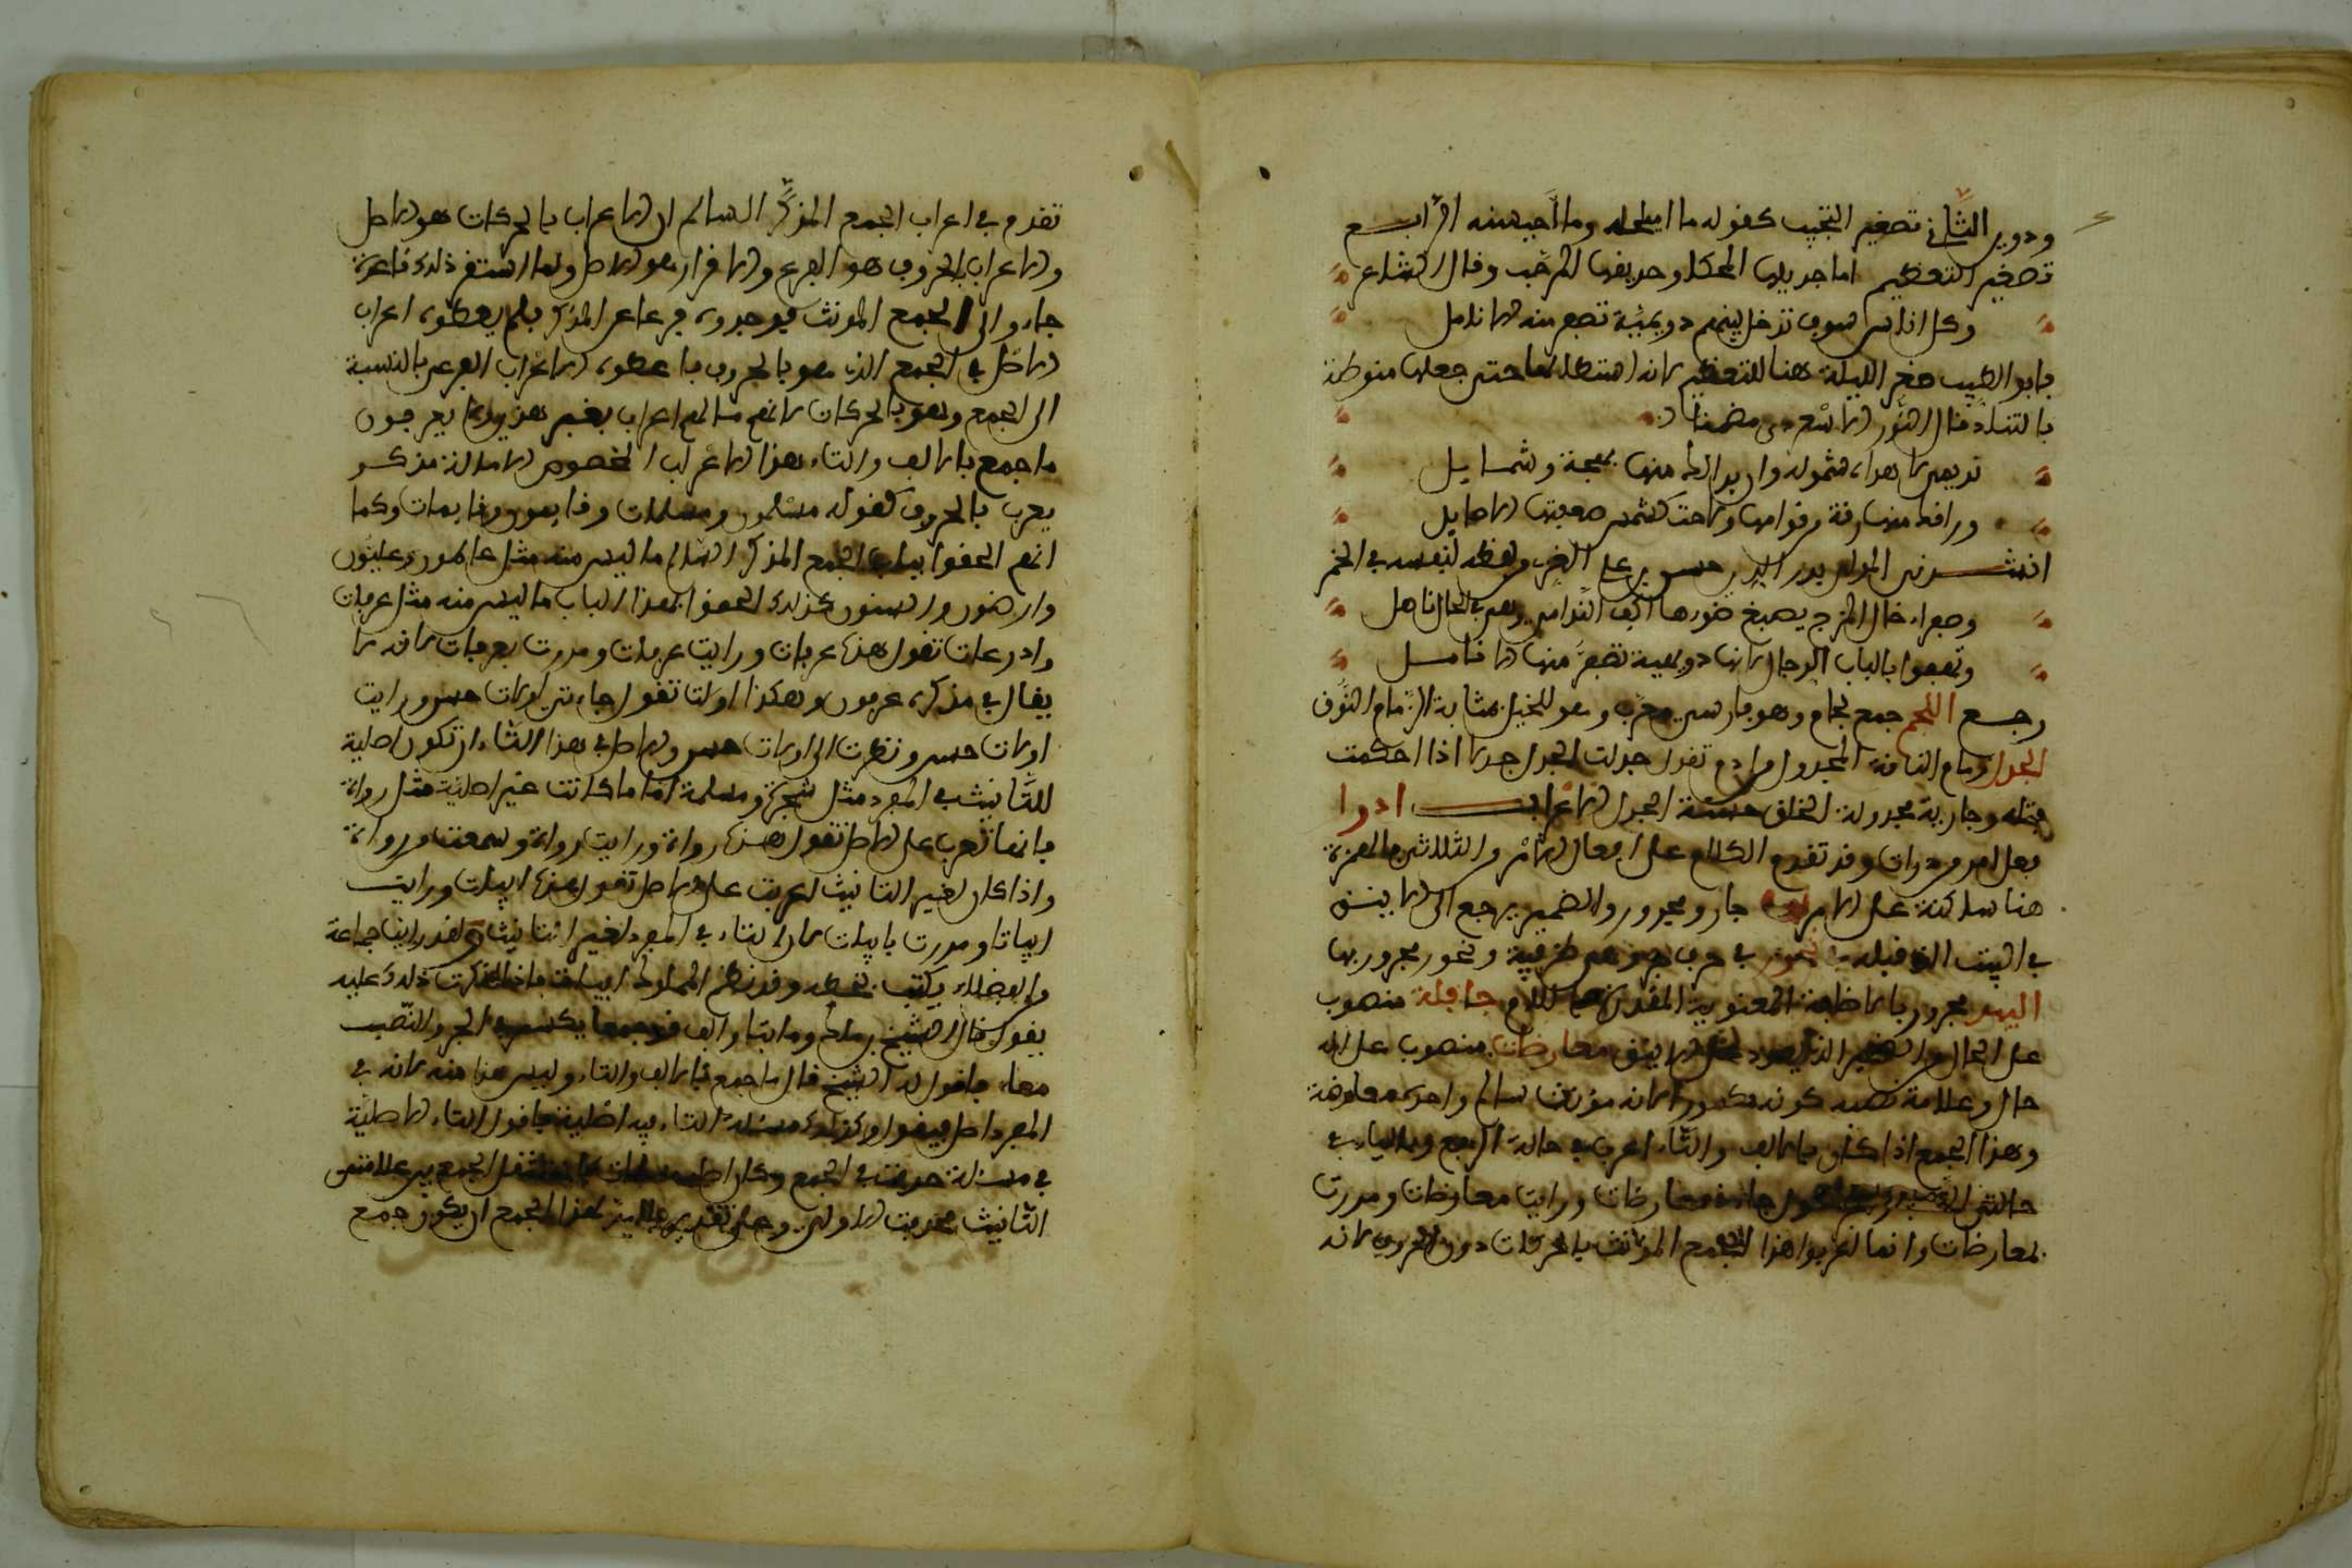 ودوير الثاني تصغير التحبيب كقوله ما اميلحه وما احيسنه الرابع
تصغير التعظيم اما جذيلها المحكك وعذيقها المرجب وقال الشاعر
وكل اناس سوف تدخل بينهم دويهية تصفر منه الانامل
فابو الطيب صغر الليلة هنا للتعظيم لانه استطالها حتى جعلها منوطة
بالتناد قال النور الاسعردي مضمنا
وراقك منها رقة وقوامها وراحت كشمس
انشدني المولى بدر الدين حسن بن علي الغزي لفظه لنفسه في الخمر
وصفراء حال المزج يصبغ ضوءها اكف الندامى وهي في الحال ناصل
وتفعل بالباب الرجال لانها دويهية تصفر منها الانامل
رجع اللجم جمع لجام وهو فارسي معرب وهو للخيل بمثابة الزمام للنوق
الجدل زمام الناقة المجدول من ادم تقول جدلت الحبل جدلا اذا احكمت
فتله وجارية مجدولة الخلق حسنة الجدل الاعراب ادرا
فعل امر من درات وقد تقدم الكلام على افعال الامر والثلاثي فالهمزة
هنا ساكنة على الامر بها جار ومجرور والضمير يرجع الى الاينق
في البيت الذي قبله في نحور في حرف جر وهي ظرفية ونحور مجرور بها
البيد مجرور بالاضافة المعنوية المقدرة باللام جافلة منصوب
على الحال والضمير الذي يعود على الاينق معارضات منصوب على انه
حال وعلامة نصبه كونه مكسورا لانه مؤنث سالم واحده معارضة
وهذا الجمع اذا كان بالالف والتاء اعرب في حالة الرفع وبالياء في
حالتي النصب والجر تقول جاءت معارضات ورايت معارضات ومررت
بمعارضات وانما اعربوا هذا الجمع المونث بالحركات دون الحروف لانه
تقدم في اعراب الجمع المذكر السالم ان الاعراب بالحركات هو الاصل
والاعراب بالحروف هو الفرع والافراد هو الاصل ولما استقر ذلك قاعدة
جاءوا الى الجمع المونث فوجدوه فرعا عن المذكر فلم يعطوه اعراب
الاصل في الجمع الذي هو بالحروف فاعطوه الاعراب الفرعي بالنسبة
الى الجمع وهو بالحركات لانهم
ما جمع بالالف والتاء بهذا الاعراب المخصوص الا ما له مذكر
يعرب بالحروف كقولك مسلمون ومسلمات وقايمون وقايمات وكما
انهم الحقوا بباب الجمع المذكر السالم ما ليس منه مثل عالمون وعليون
وارضون وسنون كذلك الحقوا بهذا الباب ما ليس منه مثل عرفات
واذرعات تقول هذه عرفات ورايت عرفات ومررت بعرفات لانه لا
يقال في مذكره عرفون وهكذا اولات تقول جاءتني اولات حسن ورايت
اولات حسن ونظرت الى اولات حسن والاصل في هذا التاء ان تكون اصلية
للتانيث في المفرد مثل شجرة ومسلمة اما ما كانت غير اصلية مثل رواة
فانها تعرب على الاصل تقول هذه رواة ورايت رواة وسمعت من رواة
واذا كان لغير التانيث اعربت على الاصل تقول هذه ابيات ورايت
ابياتا ومررت بابيات لان التاء في المفرد لغير التانيث ولقد رايت جماعة
من الفضلاء يكتب بخطه وقد نظم المملوك ابياتا فاذا انكرت ذلك عليه
يقول قال الشيخ بن مالك وما بتا والف قد جمعا يكسر في الجر والنصب
معا فاقول له الشيخ قال ما جمع بالالف والتاء وليس هذا منه لانه في
المفرد اصل فيقول وكذلك مسلمة التاء فيه اصلية فاقول التاء الاصلية
في مسلمة حذفت في الجمع وكان اصله مسلمتات الجمع بين علامتي
التانيث فحذفت الاولى وهذا الجمع ان يكون جمع